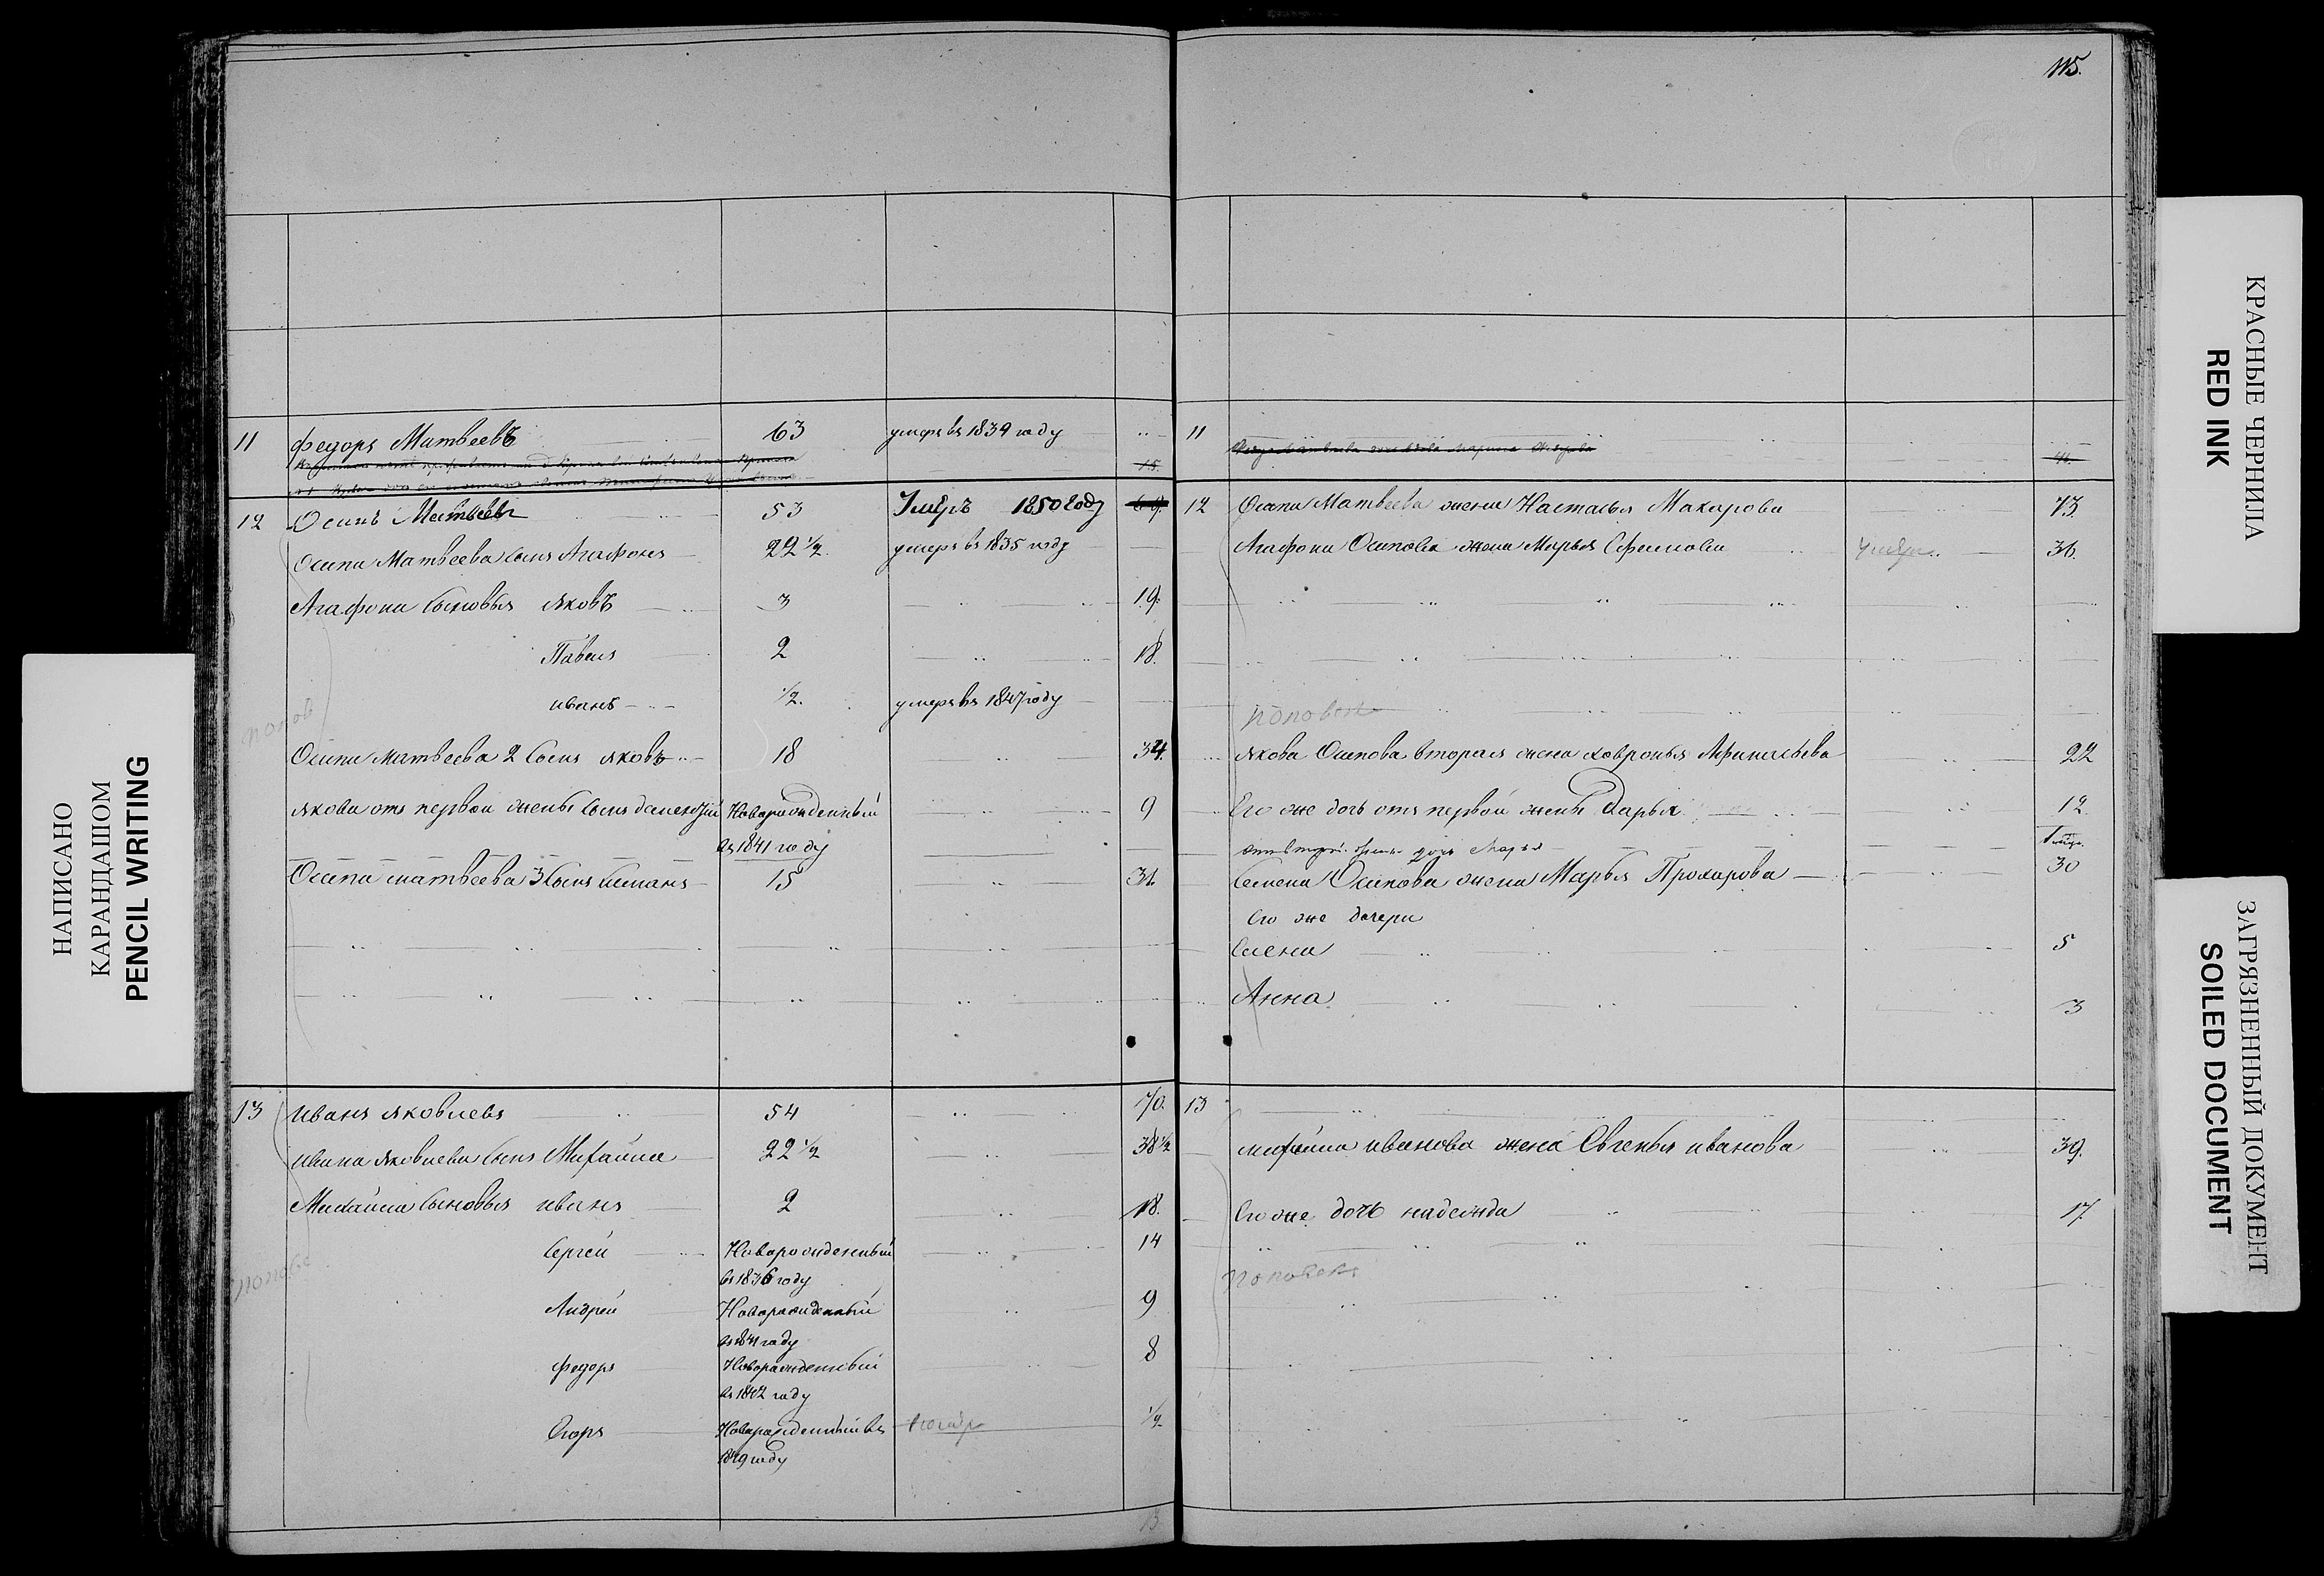 115.
11 Федоръ Матвеевъ 63 умеръ въ 1839 году
15.
11
12 Осипъ Матвеевъ 53 Умеръ 1850 году
12 Осипа Матвеева жена Настасья Макарова 73.
Осипа Матвеева сынъ Агафонъ 22 1/2. умеръ въ 1835 году
Агафона Осипова жена Марья Ефимова 36.
Агафона сыновья Яковъ 3 19.
Павелъ 2 18.
иванъ 1/2. умеръ въ 1847 году
попов
поповы
Осипа Матвеева 2 сынъ яковъ 18 34.
якова Осипова вторая жена Ховронья Афанасьева 22
якова отъ первой жены сынъ Новорожденный 9
въ 1841 году
Его же дочь отъ первой жены Дарья 12.
дочь Марья
Осипа матвеева 3 сынъ 15 31.
Семена Осипова жена Марья Прохорова 30
Его же дочери
Елена 5
Анна 3
13 Иванъ яковлевъ 54 70.
13
ивана яковлева сынъ Михайла 22 1/2 38 1/2
михайла иванова жена Евгенья иванова 39.
Михайла сыновья иванъ 2 18.
Его же дочь надежда 17.
Сергей Новорожденный 14
въ 1836 году
попов
Андрей Новорожденный 9
въ 1841 году
федоръ Новорожденный 8
въ 1842 году
Егоръ Новорожденный въ 1/2
1849 году
НАПИСАНО
КАРАНДАШОМ
PENCIL WRITING
КРАСНЫЕ ЧЕРНИЛА
RED INK
ЗАГРЯЗНЕННЫЙ ДОКУМЕНТ
SOILED DOCUMENT